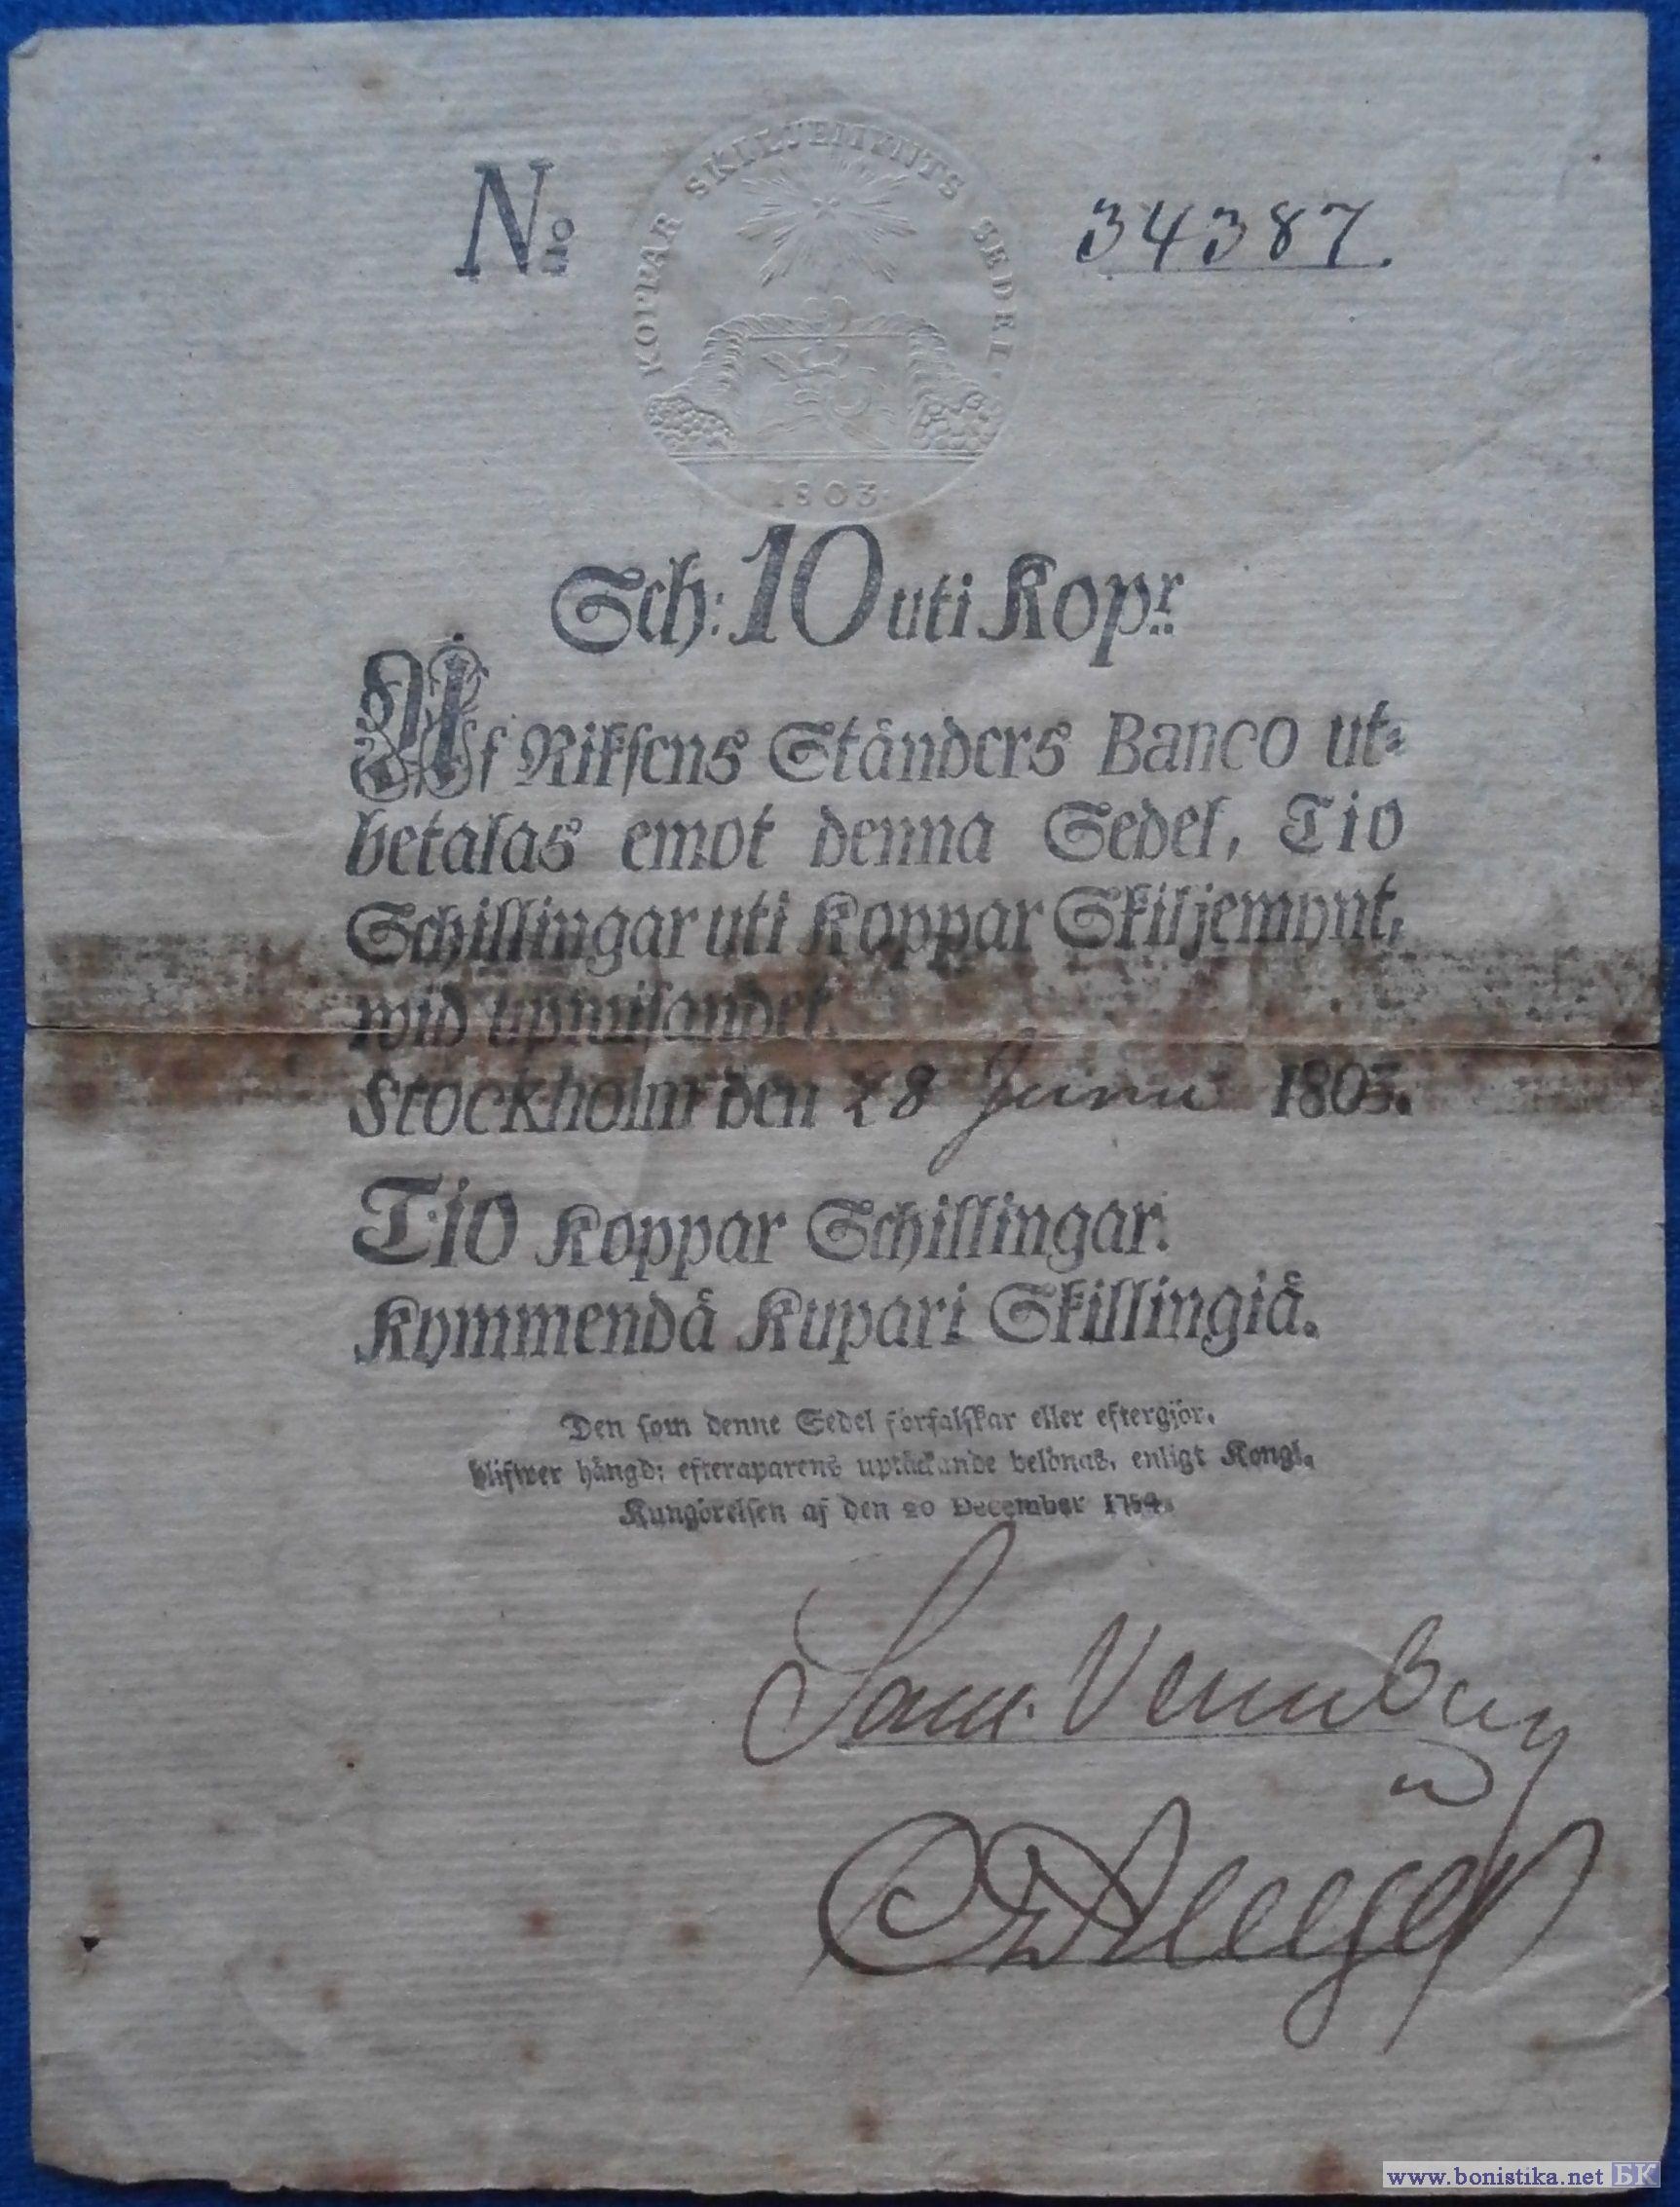 KOPPAR SKILJEMYNTS SEDEL.
No 34387.
1803
Sch: 10 uti Kop:r
Af Riksens Ständers Banco ut=
betalas emot denna Sedel, Tio
Schillingar uti Koppar Skiljemynt,
wid upwisandet.
Stockholm den 28 Junii 1803.
Tio Koppar Schillingar.
Kymmendä Kupari Skillingiä.
Den som denne Sedel förfalskar eller eftergjör,
blifwer hängd; efteraparens uptäckande belönas, enligt Kongl.
Kungörelsen af den 20 December
Sam.
www.bonistika.net БК